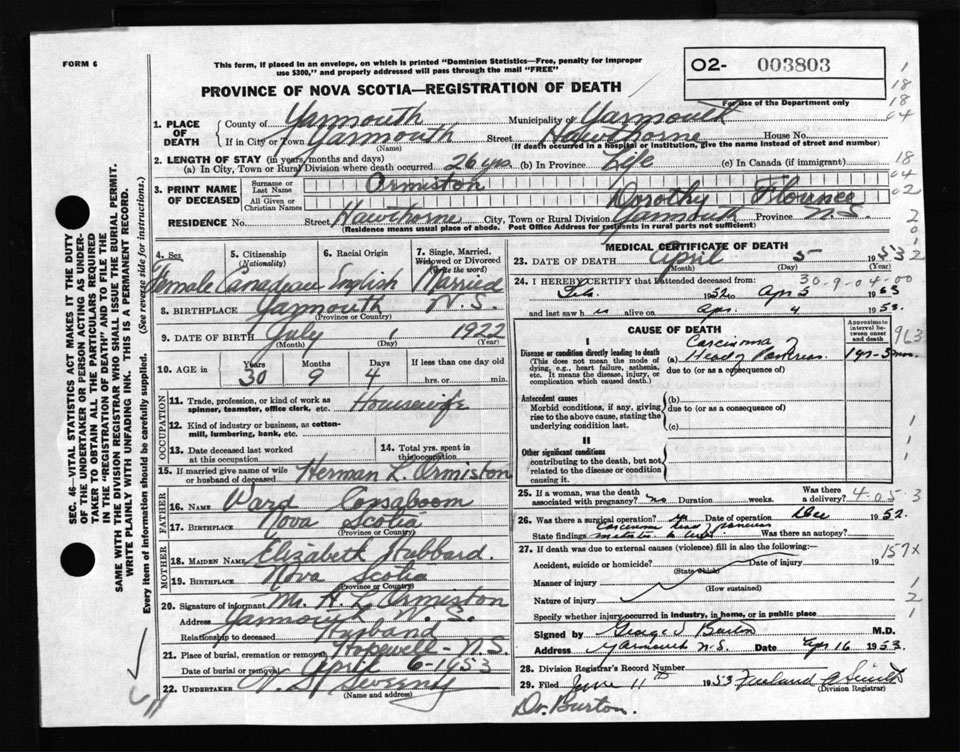 FORM 6
This form, if placed in an envelope, on which is printed "Dominion Statistics—Free, penalty for improper
use $300," and properly addressed will pass through the mail "FREE"
O2- 003803
For use of the Department only
PROVINCE OF NOVA SCOTIA—REGISTRATION OF DEATH
1. PLACE OF DEATH
County of Yarmouth Municipality of Yarmouth
If in City or Town Yarmouth (Name) Street Hawthorne House No.
(If death occurred in a hospital or institution, give the name instead of street and number)
2. LENGTH OF STAY (in years, months and days)
(a) In City, Town or Rural Division where death occurred 26 yrs. (b) In Province Life (c) In Canada (if immigrant)
3. PRINT NAME OF DECEASED
Surname or Last Name Ormiston
All Given or Christian Names Dorothy Florence
RESIDENCE No. Street Hawthorne City, Town or Rural Division Yarmouth Province N.S.
(Residence means usual place of abode. Post Office Address for residents in rural parts not sufficient)
4. Sex Female
5. Citizenship (Nationality) Canadian
6. Racial Origin English
7. Single, Married, Widowed or Divorced (write the word) Married
8. BIRTHPLACE Yarmouth N.S.
(Province or Country)
9. DATE OF BIRTH July 1 1922
(Month) (Day) (Year)
10. AGE in Years 30 Months 9 Days 4 If less than one day old hrs. or min.
OCCUPATION
11. Trade, profession, or kind of work as spinner, teamster, office clerk, etc. Housewife
12. Kind of industry or business, as cotton-mill, lumbering, bank, etc.
13. Date deceased last worked at this occupation
14. Total yrs. spent in this occupation
15. If married give name of wife or husband of deceased Herman L. Ormiston
FATHER
16. NAME Ward Consaboom
17. BIRTHPLACE Nova Scotia
(Province or Country)
MOTHER
18. MAIDEN NAME Elizabeth Hubbard.
19. BIRTHPLACE Nova Scotia
(Province or Country)
20. Signature of informant Mr. H. L. Ormiston
Address Yarmouth N. S.
Relationship to deceased Husband
21. Place of burial, cremation or removal Hopewell - N.S.
Date of burial or removal April 6-1953
22. UNDERTAKER V. S. Sweeny
(Name and address)
MEDICAL CERTIFICATE OF DEATH
23. DATE OF DEATH April 5 1953
(Month) (Day) (Year)
24. I HEREBY CERTIFY that I attended deceased from: 30-9-04-00
Feb. 1952 to Apr 5 1953
and last saw h alive on Apr. 4 1953.
CAUSE OF DEATH
Approximate interval between onset and death
I
Disease or condition directly leading to death
(This does not mean the mode of dying, e.g., heart failure, asthenia, etc. It means the disease, injury, or complication which caused death.)
(a) Carcinoma of Head of Pancreas.
due to (or as a consequence of)
Antecedent causes
Morbid conditions, if any, giving rise to the above cause, stating the underlying condition last.
(b)
due to (or as a consequence of)
(c)
II
Other significant conditions
contributing to the death, but not related to the disease or condition causing it.
25. If a woman, was the death associated with pregnancy? no Duration weeks. Was there a delivery?
4-05 3
26. Was there a surgical operation? Date of operation Dec 1952.
State findings Carcinoma head of pancreas Was there an autopsy?
27. If death was due to external causes (violence) fill in also the following:—
157X
Accident, suicide or homicide? (State which) Date of injury 19
Manner of injury
(How sustained)
Nature of injury
Specify whether injury occurred in industry, in home, or in public place
Signed by George V. Burton M.D.
Address Yarmouth N.S. Date Apr 16 1953
28. Division Registrar's Record Number
29. Filed June 11th 1953
(Division Registrar)
Dr. Burton.
SEC. 46—VITAL STATISTICS ACT MAKES IT THE DUTY
OF THE UNDERTAKER OR PERSON ACTING AS UNDER-
TAKER TO OBTAIN ALL THE PARTICULARS REQUIRED
IN THE "REGISTRATION OF DEATH" AND TO FILE THE
SAME WITH THE DIVISION REGISTRAR WHO SHALL ISSUE THE BURIAL PERMIT.
WRITE PLAINLY WITH UNFADING INK. THIS IS A PERMANENT RECORD.
Every item of information should be carefully supplied. (See reverse side for instructions.)